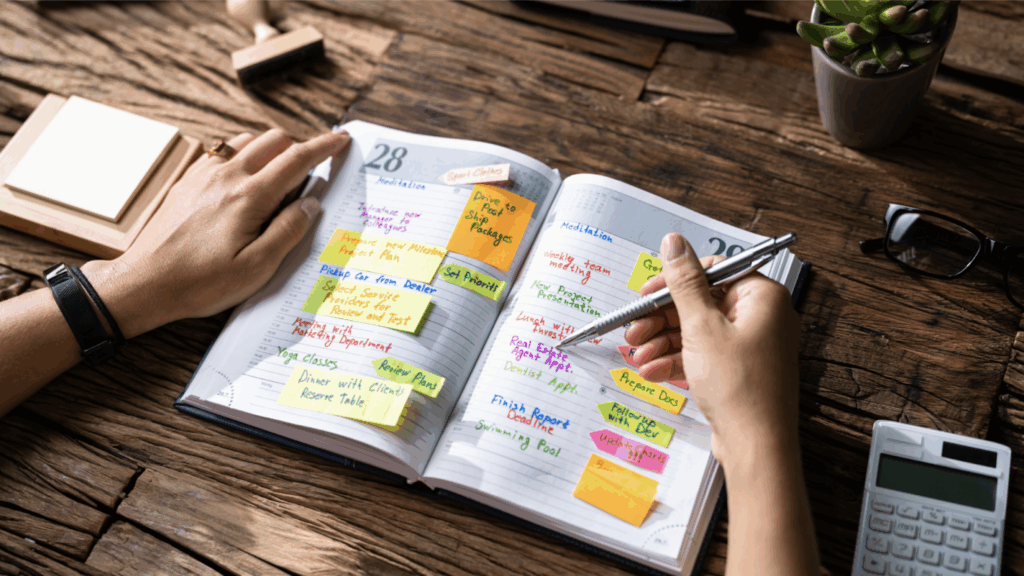 28
Meditation
Sport Clothes
Drive to
Post
Ship
Packages
Introduce new
Manager to
Colleagues
Prepare new Marketing
Project Plan
Set Priority
Pickup Car from Dealer
Select Service
Providers for
Review and Test
Meeting with
Marketing Department
Yoga Classes
Review Plans
Dinner with Client
Reserve Table
29
Meditation
Weekly team
meeting
New Project
Presentation
Lunch with
Real Estate
Agent Appt.
Dentist Appt.
Prepare Docs
Follow up
with Dev
Finish Report
Deadline
Swimming Pool